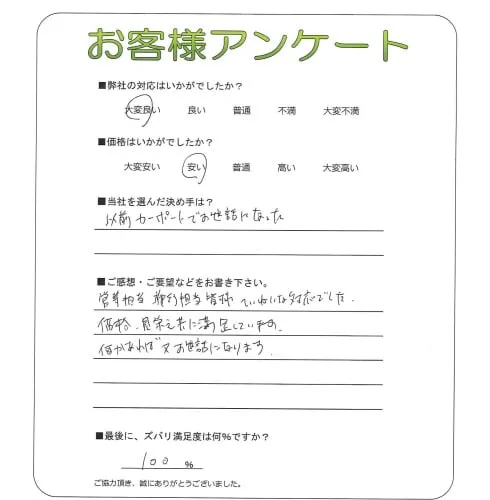 お客様アンケート
■弊社の対応はいかがでしたか？
大変良い 良い 普通 不満 大変不満
■価格はいかがでしたか？
大変安い 安い 普通 高い 大変高い
■当社を選んだ決め手は？
以前カーポートでお世話になった
■ご感想・ご要望などをお書き下さい。
営業担当 施行担当 皆様 ていねいな対応でした。
価格、見栄え共に満足しています。
何かあれば又お世話になります。
■最後に、ズバリ満足度は何％ですか？
100 %
ご協力頂き、誠にありがとうございました。